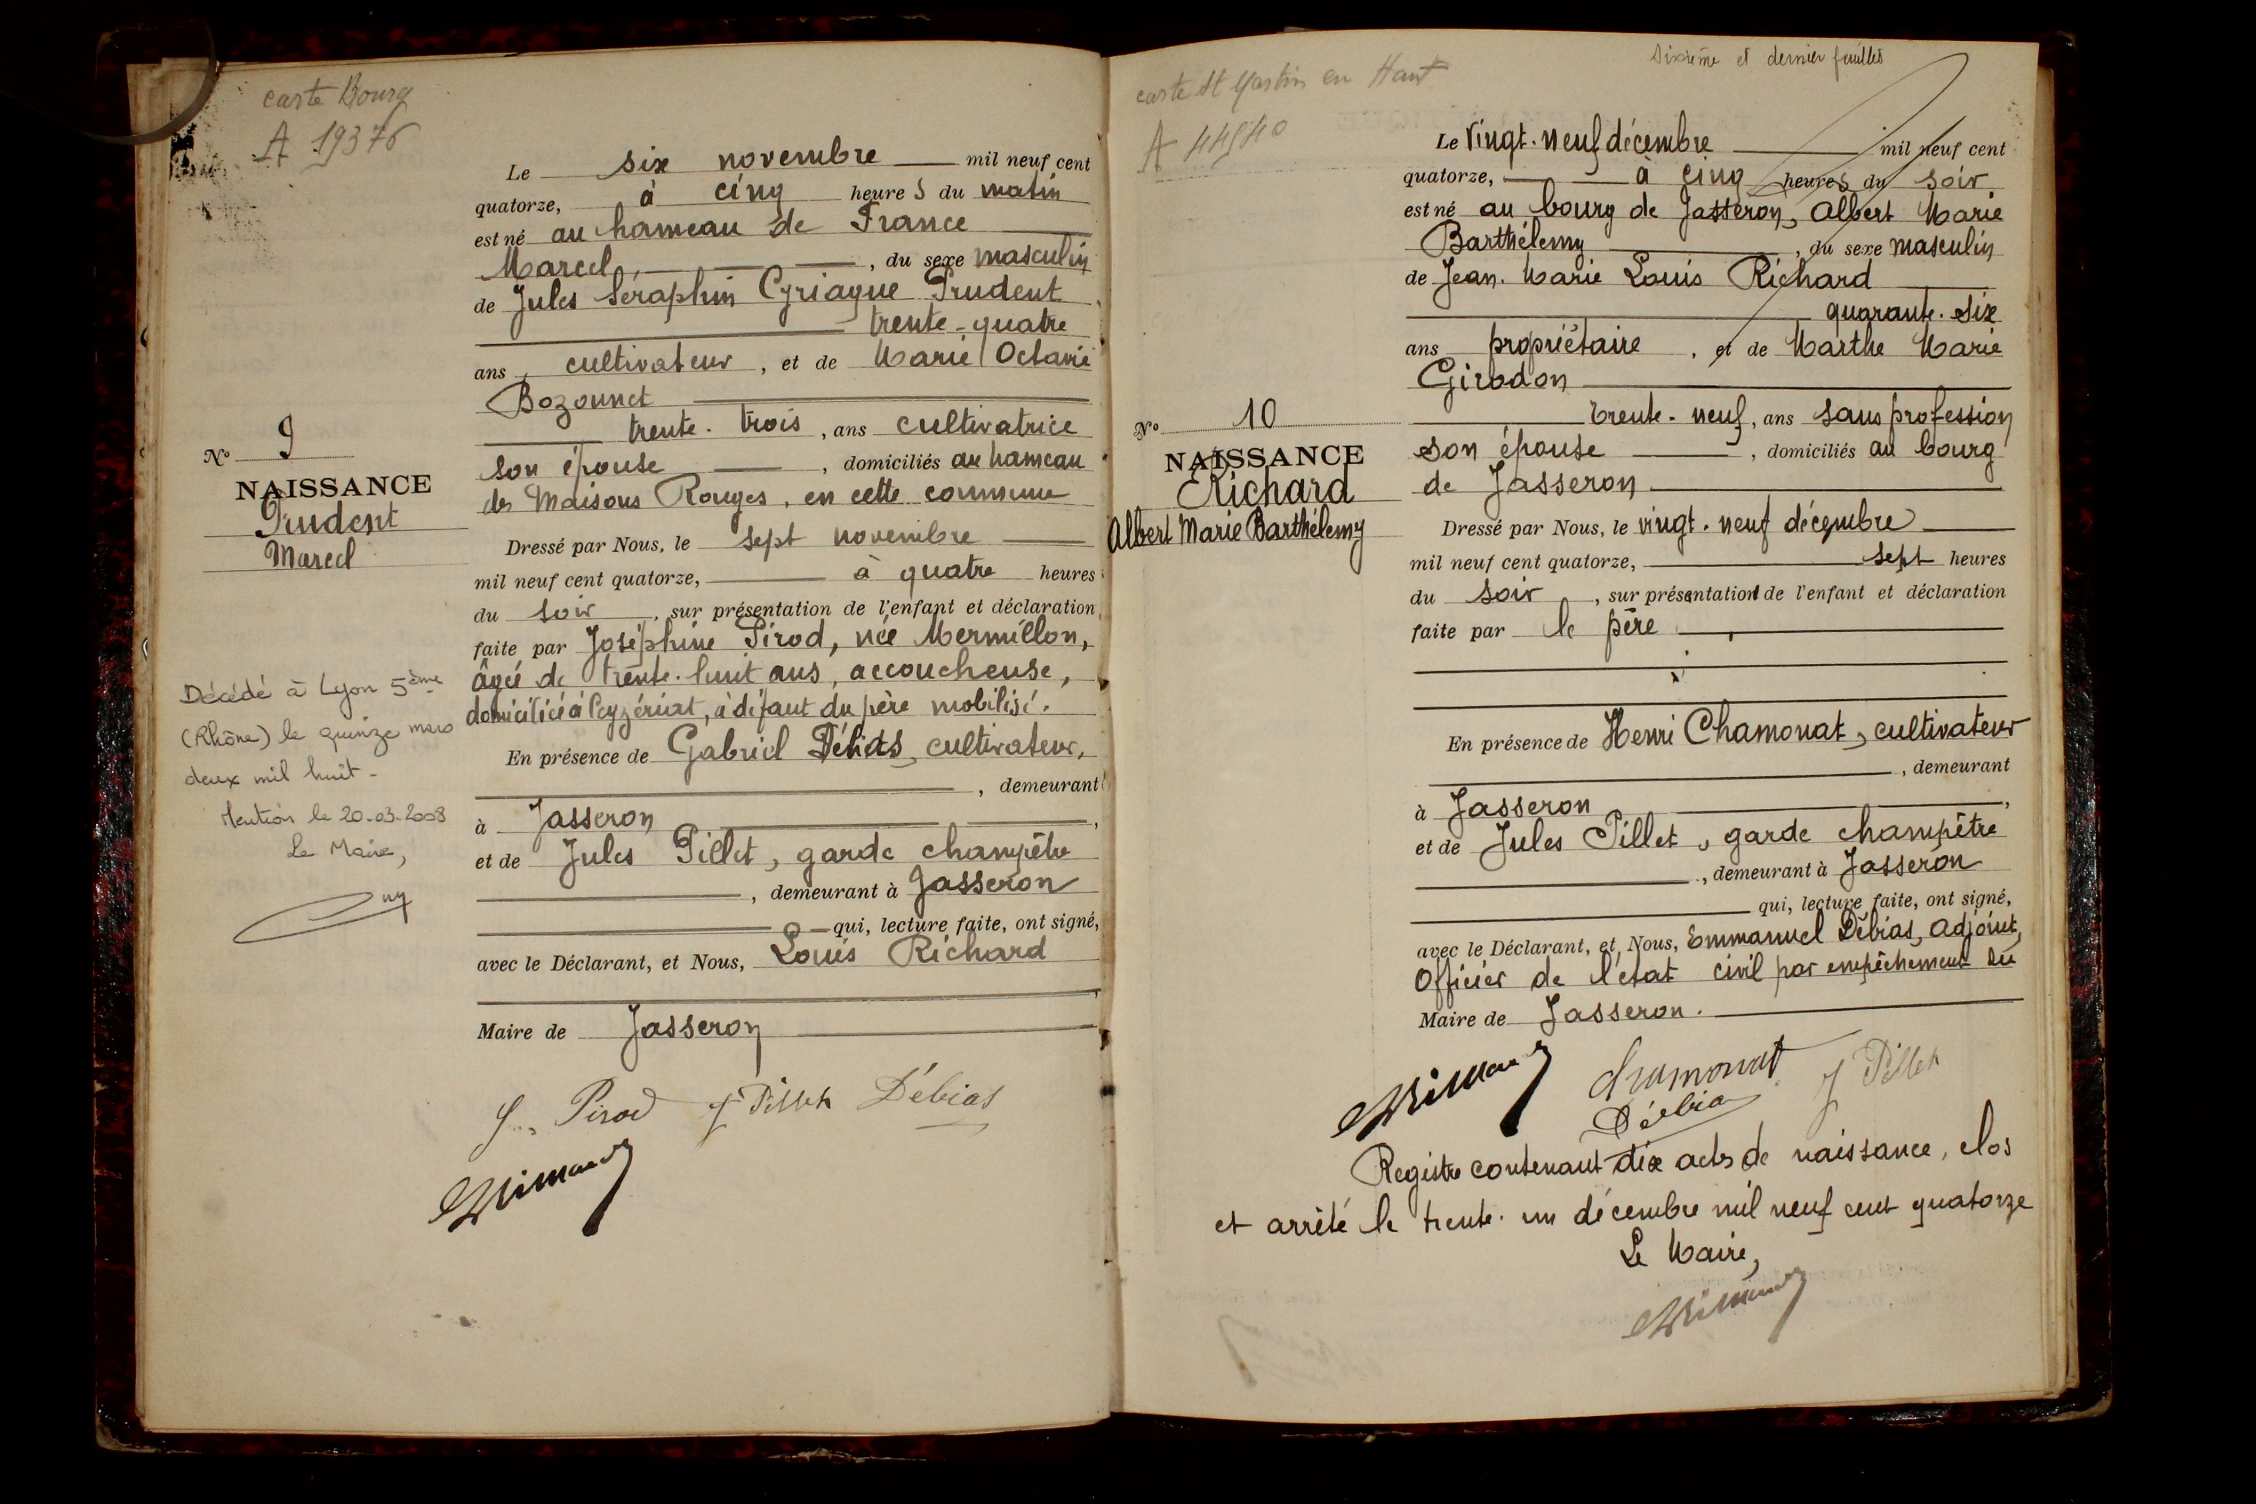 carte Bourg
A 19376
Le six novembre mil neuf cent
quatorze, à cinq heures du matin
est né au hameau de France
Marcel, du sexe masculin
de Jules Séraphin Cyriaque Prudent
trente-quatre
ans, cultivateur, et de Marie Octavie
Bozonnet
trente-trois, ans cultivatrice
son épouse, domiciliés au hameau
des Maisons Rouges, en cette commune
Dressé par Nous, le sept novembre
mil neuf cent quatorze, à quatre heures
du soir, sur présentation de l'enfant et déclaration
faite par Joséphine Pirod, née Mermillon,
âgée de trente-huit ans, accoucheuse,
domiciliée à Ceyzériat, à défaut du père mobilisé.
En présence de Gabriel Débias, cultivateur,
, demeurant
à Jasseron,
et de Jules Pillet, garde champêtre
, demeurant à Jasseron
qui, lecture faite, ont signé,
avec le Déclarant, et Nous, Louis Richard
Maire de Jasseron
J. Pirod J Pillet Débias
N° 9
NAISSANCE
Prudent
Marcel
Décédé à Lyon 5ème
(Rhône) le quinze mars
deux mil huit -
Mention le 20-03-2008
Le Maire,
carte St Martin en Haut
Sixième et dernier feuillet
Le vingt-neuf décembre mil neuf cent
quatorze, à cinq heures du soir
est né au bourg de Jasseron, Albert Marie
Barthélemy, du sexe masculin
de Jean-Marie Louis Richard
quarante-six
ans propriétaire, et de Marthe Marie
Girodon
trente-neuf, ans sans profession
son épouse, domiciliés au bourg
de Jasseron
Dressé par Nous, le vingt-neuf décembre
mil neuf cent quatorze, sept heures
du soir, sur présentation de l'enfant et déclaration
faite par le père
En présence de Henri Chamonat, cultivateur
, demeurant
à Jasseron,
et de Jules Pillet, garde champêtre
, demeurant à Jasseron
qui, lecture faite, ont signé,
avec le Déclarant, et Nous, Emmanuel Débias, adjoint,
Officier de l'état civil par empêchement du
Maire de Jasseron.
Chamonat J Pillet
Débias
N° 10
NAISSANCE
Richard
Albert Marie Barthélemy
Registre contenant dix actes de naissance, clos
et arrêté le trente-un décembre mil neuf cent quatorze
Le Maire,